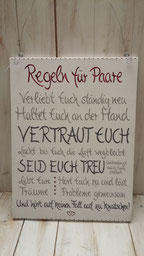 Regeln für Paare
Verliebt Euch ständig neu
Haltet Euch an der Hand
VERTRAUT EUCH
Lacht bis Euch die Luft wegbleibt
SEID EUCH TREU
Lebt Eure Hört Euch zu und löst
Träume Probleme gemeinsam
Und hört auf keinen Fall auf zu knutschen!